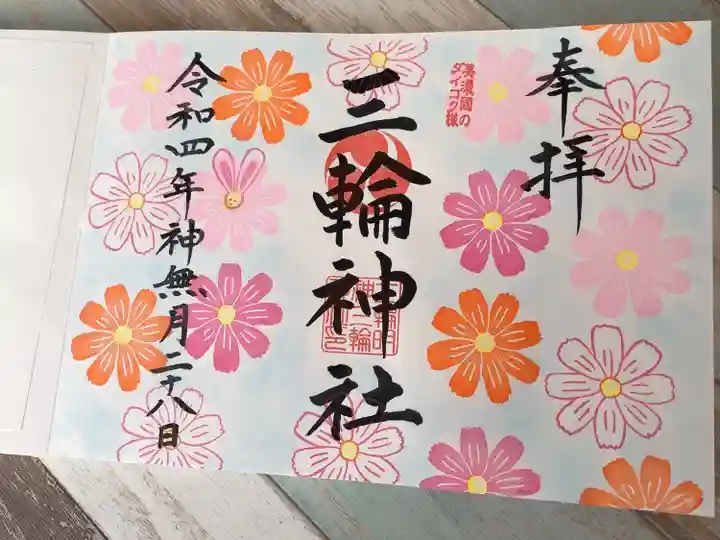 奉拝
美濃國の
ダイコク様
三輪神社
令和四年神無月二十八日